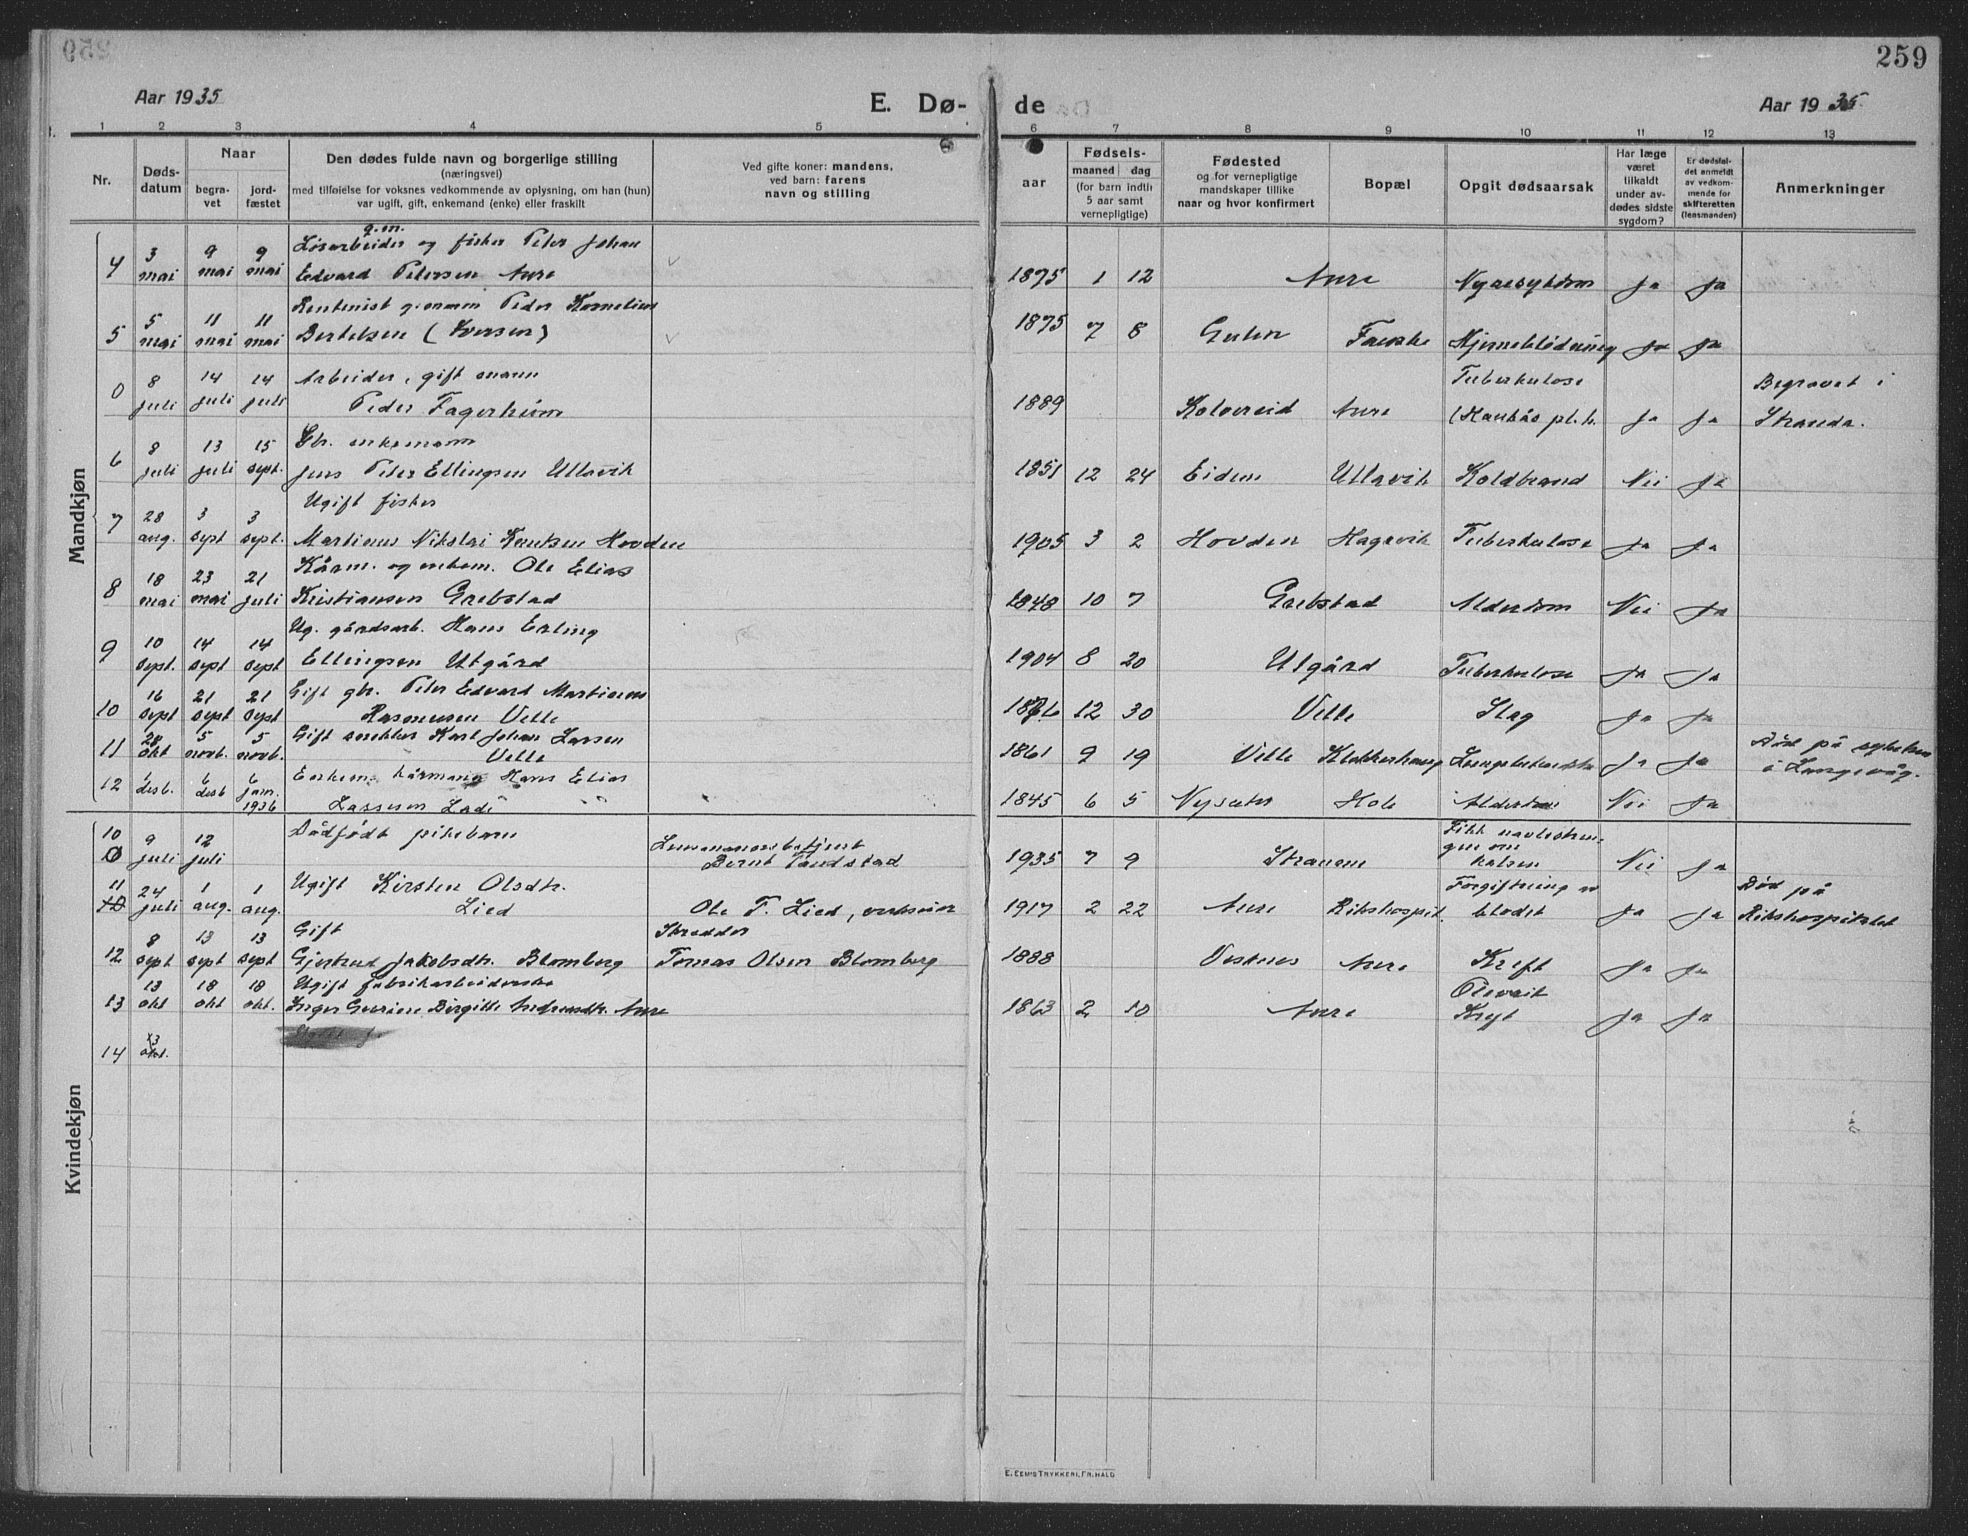 259
Aar 1935
E. Dø-
de
Aar 1935
1 2 3 4 5
6 7 8 9 10 11 12 13
Nr.
Døds-
datum
Naar
begra-
vet
jord-
fæstet
Den dødes fulde navn og borgerlige stilling
(næringsvei)
med tilføielse for voksnes vedkommende av oplysning, om han (hun)
var ugift, gift, enkemand (enke) eller fraskilt
Ved gifte koner: mandens,
ved barn: farens
navn og stilling
aar
Fødsels-
maaned dag
(for barn indtil
5 aar samt
vernepligtige)
Fødested
og for vernepligtige
mandskaper tillike
naar og hvor konfirmert
Bopæl
Opgit dødsaarsak
Har læge
været
tilkaldt
under av-
dødes sidste
sygdom?
Er dødsfal-
det anmeldt
av vedkom-
mende for
skifteretten
(lensmanden)
Anmerkninger
Mandkjøn
g.m.
4 3 mai 9 mai 9 mai Løsarbeider og fisker Peter Johan
Edvard Petersen Aure
1875 1 12 Aure Nyresykdom Ja Ja
5 5 mai 11 mai 11 mai Rentenist g.mann Peder Kornelius
Bertelsen (Iversen)
1875 7 8 Gulen Hjerneblødning Ja Ja
0 8 juli 14 juli 14 juli Arbeider, gift mann
Peder Fagerheim
1889 Kolvereid Aure Tuberkulose
(Haukås pl.h. Ja Ja
Begravet i
Stranda.
6 8 juli 13 juli 15 sept. Gbr. enkemann
Jens Peter Ellingsen Utlavik
1851 12 24 Eidem Utlavik Koldbrand Nei Ja
7 28 aug. 3 sept 3 sept. Ugift fisker
Martinus Nikolai Knutsen Hovden
1905 3 2 Hovden Hagevik Tuberkulose Ja Ja
8 18 mai 23 mai 21 juli Kårm. og enkem. Ole Elias
Kristiansen Grebstad
1848 10 7 Grebstad Alderdom Nei Ja
9 10 sept. 14 sept 14 sept Ug. gårdsarb. Hans Erling
Ellingsen Utgård
1904 8 20 Utgård Tuberkulose Ja Ja
10 16 sept 21 sept 21 sept Gift gbr. Peter Edvard Martinus
Rasmussen Velle
12 30 Velle Slag Ja Ja
11 28 okt 5 novb. 5 novb. Gift snekker Karl Johan Larsen
Velle
1861 9 19 Velle Klokkerhaug Ja Ja
Død på sykehus
i Langevåg.
12 1 desb. 6 desb 6 jan. 1936 Enkem. kårmann Hans Elias
Lassesen
1845 6 5 Nysæter Hole Alderdom Nei Ja
Kvindekjøn
10
0 9 juli 12 juli Dødfødt pikebarn
Lensmannsbetjent
Bernt Tandstad
1935 7 9 Straumen Fikk navlestren-
gen om
halsen Nei Ja
11
10 24 juli 1 aug. 1 aug. Ugift Kirsten Olsdtr.
Lied
Ole T. Lied, verkseier
1917 2 22 Aure Rikshospit. Forgiftning av
blodet Ja Ja
Død på
Rikshospitalet
12 8 sept 13 sept 13 sept Gift
Gjertrud Jakobsdtr. Blomberg
Skredder
Tomas Olsen Blomberg
1888 Vestnes Aure Kreft Ja Ja
13 13 okt 18 okt 18 okt. Ugift fabrikarbeiderske
Inger Gurine Birgitte Andreasdtr. Aure
1863 2 10 Aure Ja Ja
14 okt.
E. EEMS TRYKKERI, FR.HALD